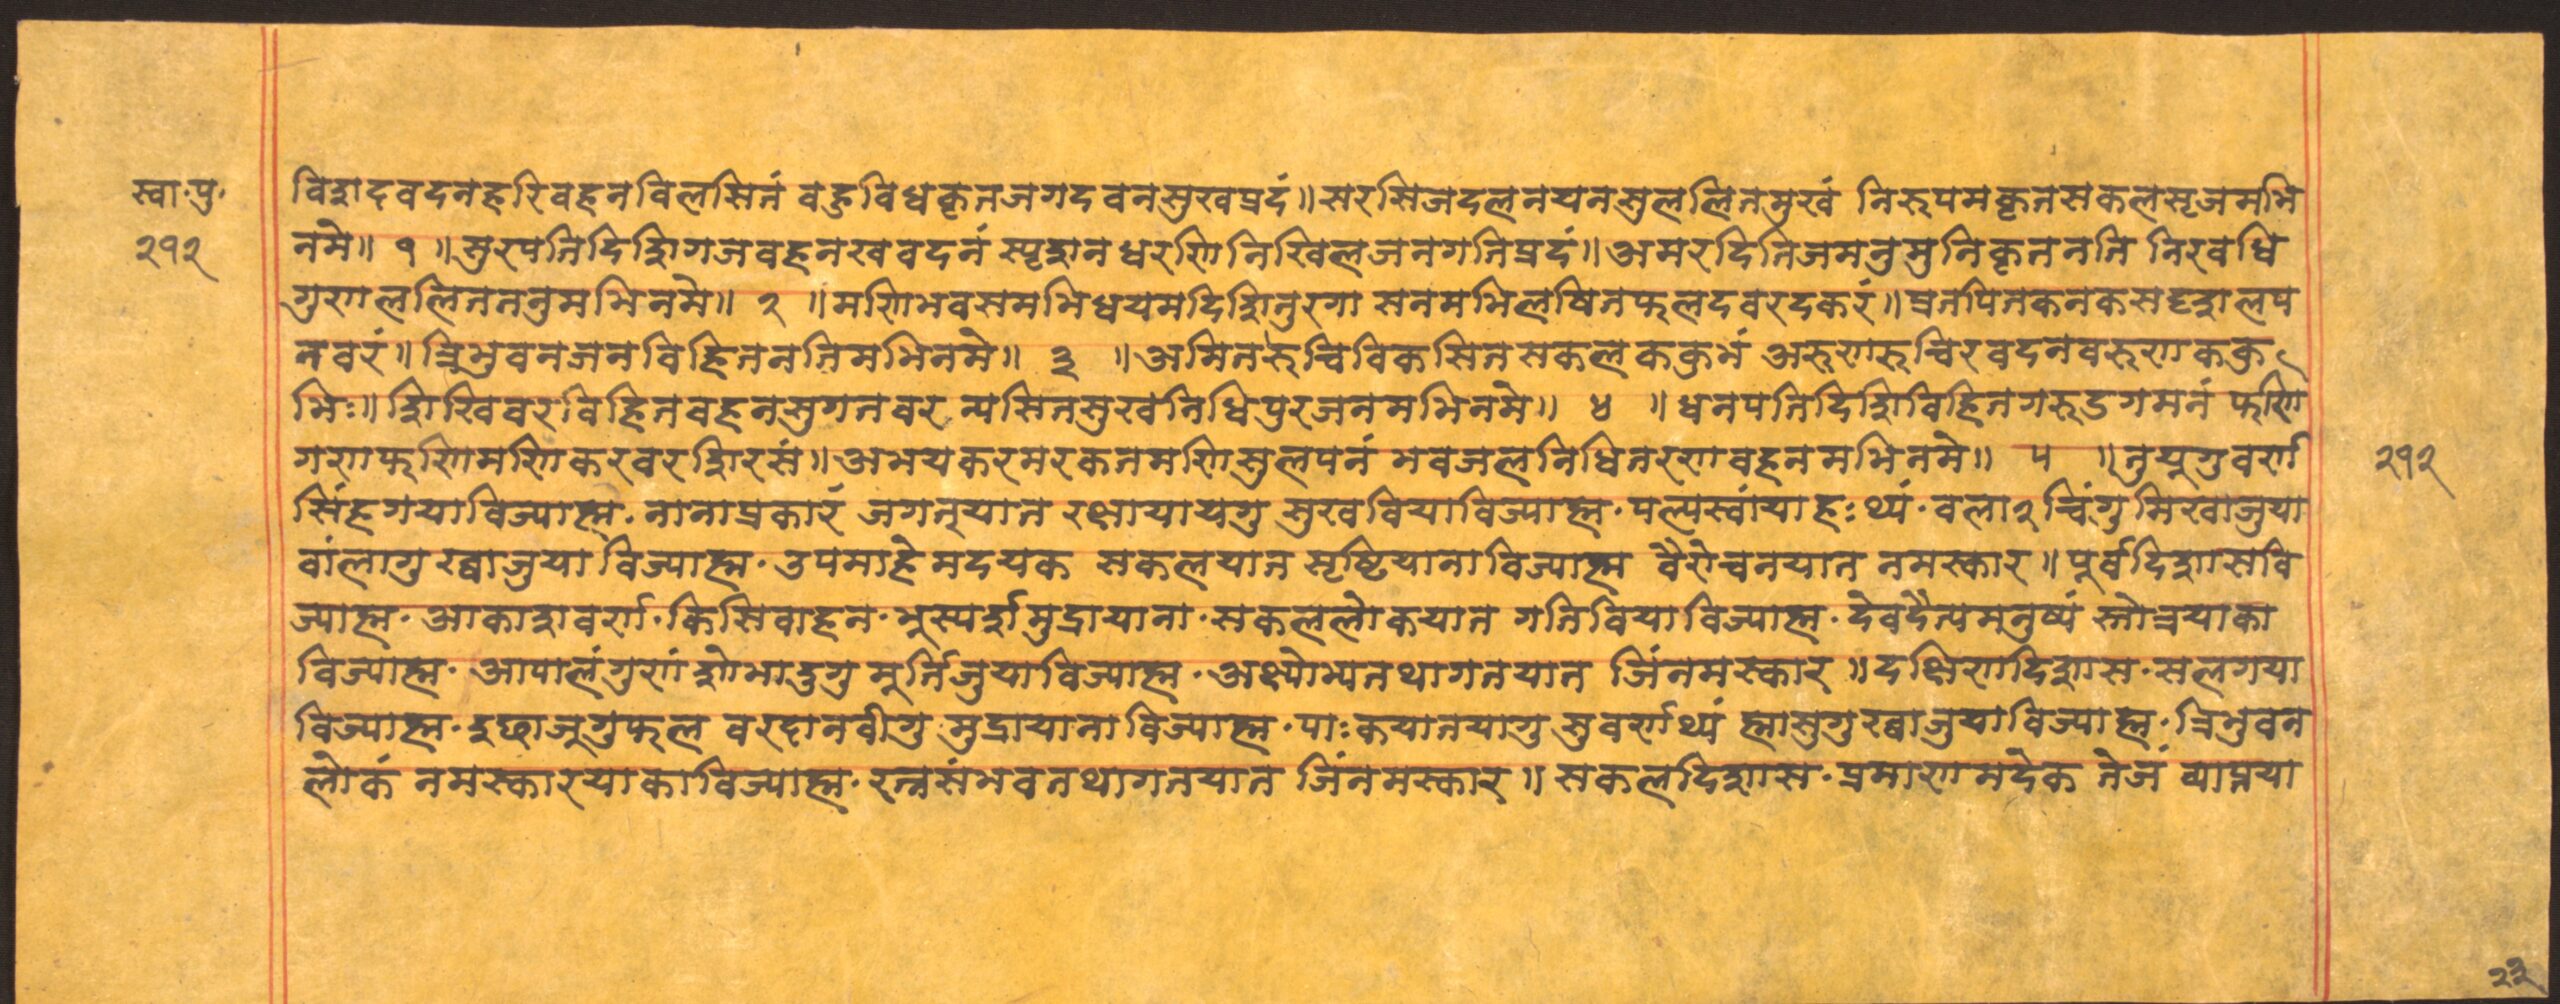 स्वा.पु.
२१२
विशदवदनहरिवहनविलसितं वहुविधकृतजगदवनसुखप्रदं॥सरसिजदलनयनसुललितमुखं निरुपमकृतसकलसृजमभि
नमे॥ १ ॥सुरपतिदिशिगजवहनखवदनं स्पृशनधरणिनिखिलजनगतिप्रदं॥अमरदितिजमनुमुनिकृतनति निरवधि
गुणललिततनुमभिनमे॥ २ ॥मणिभवसमभिधयमदिशितुरगा सनमभिलषितफलदवरदकरं॥प्रतपितकनकसदृशलप
नवरं॥त्रिभुवनजनविहितनतिमभिनमे॥ ३ ॥अमितरुचिविकसितसकलककुभं अरुणरुचिरवदनवरुणककु
भिः॥शिखिवरविहितवहनसुगतवर न्यसितसुखनिधिपुरजनमभिनमे॥ ४ ॥धनपतिदिशिविहितगरुडगमनं फणि
गणफणिमणिकरवरशिरसं॥अभयकरमरकतमणिसुलपनं भवजलनिधितरणवहनमभिनमे॥ ५ ॥तुयुगुवर्ण
सिंहगयाविज्याह्म. नानाप्रकारं जगत्‌यात रक्षायायगु सुखवियाविज्याह्म. पल्यस्वांयाहः थ्यं. वला२चिंगु मिखाजुया
वांलागु ख्वाजुया विज्याह्म. उपमाहे मदयक सकलयात सृष्टियानाविज्याह्म वैरोचनयात नमस्कार॥पूर्वदिशासवि
ज्याह्म. आकाशवर्ण. किसिवाहन. भुस्पर्शमुद्रायाना. सकललोकयात गतिवियाविज्याह्म. देवदैत्यमनुष्यं स्तोत्रयाका
विज्याह्म. आपालंगुणं शोभादुगु मुर्तिजुयाविज्याह्म. अक्ष्योभ्यतथागतयात जिंनमस्कार॥दक्षिणदिशास. सलगया
विज्याह्म. इछाजूगुफल वरदानवीगु मुद्रायानाविज्याह्म. पाःकयातयागु सुवर्णथ्यं ह्मासुगुख्वाजुयाविज्याह्म. त्रिभुवन
लोकं नमस्कारयाकाविज्याह्म. रत्नसंभवतथागतयात जिंनमस्कार॥सकलदिशास. प्रमाणमदेक तेजं व्याप्तया
२१२
२३